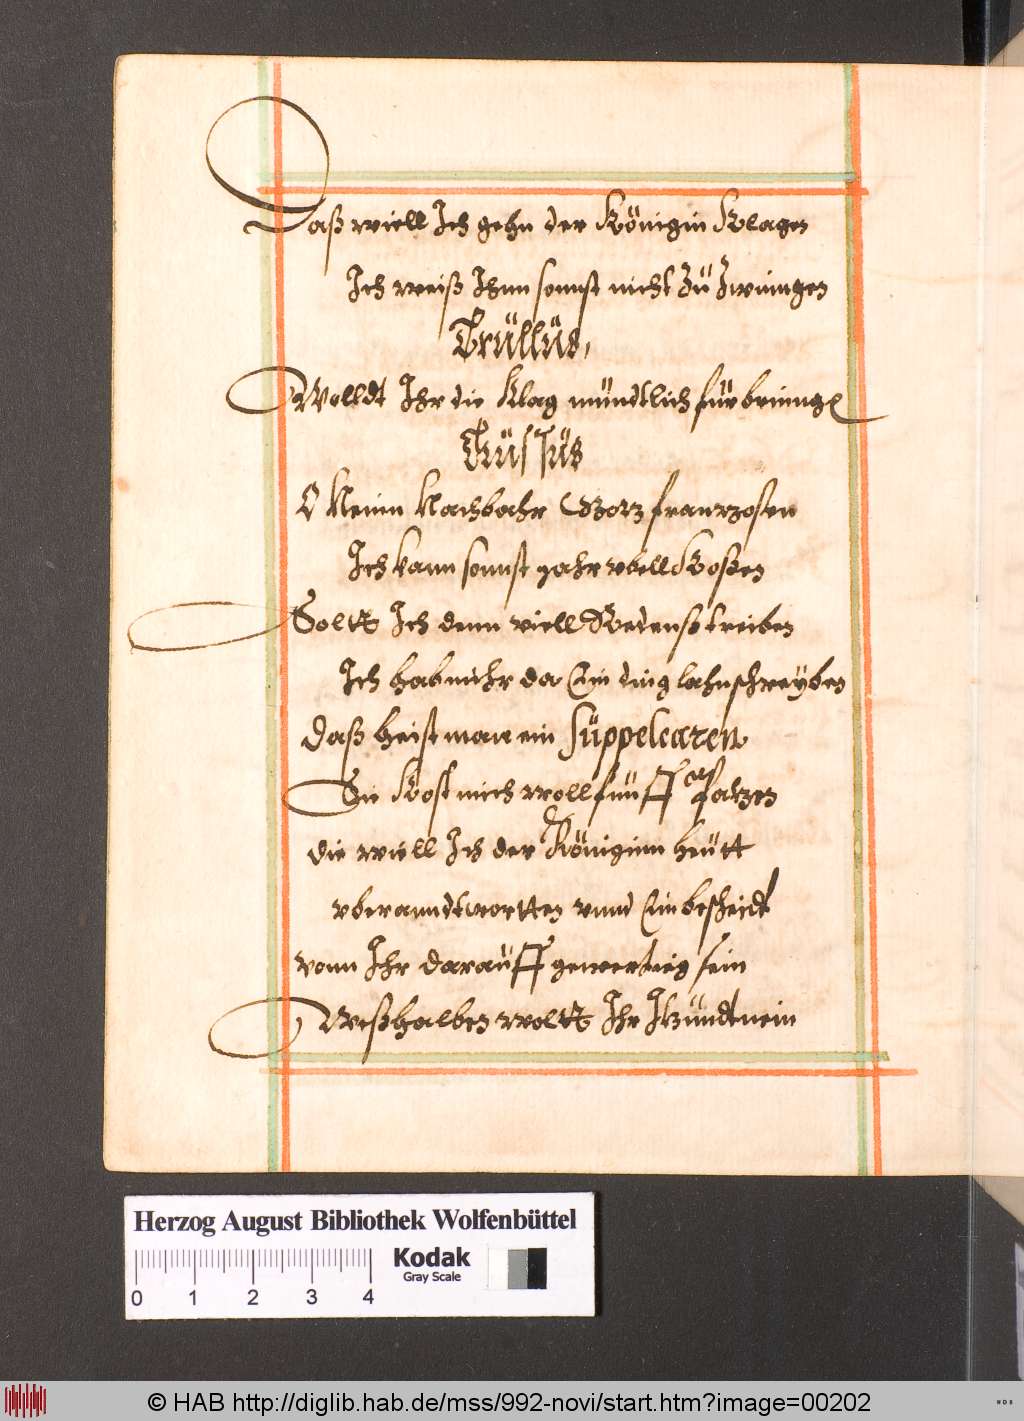 Daß wiell Ich gehn der Königin Klagen
Ich weiß Ihnn sonnst nicht zü zwiningen
Trüllüs,
Wolldt Ihr die Klag mündtlich fürbringen
Tüsjüs
O Neinn Nachbahr Botz frantzosen
Ich kann sonnst gahr vbell Koßen
Soltt Ich denn viell Redenß treiben
Ich hab mihr da Ein ding lahn schreyben
daß heist man ein süppelcaren
Sie Kost mich woll fünff Patzen
die wiell Ich der Königinn heütt
vberanndtwortten vnnd Ein bescheidt
vonn Ihr darauff gewerttig sein
Weßhalben woltt Ihr Itzündt nein
Herzog August Bibliothek Wolfenbüttel
Kodak
Gray Scale
0 1 2 3 4
© HAB http://diglib.hab.de/mss/992-novi/start.htm?image=00202